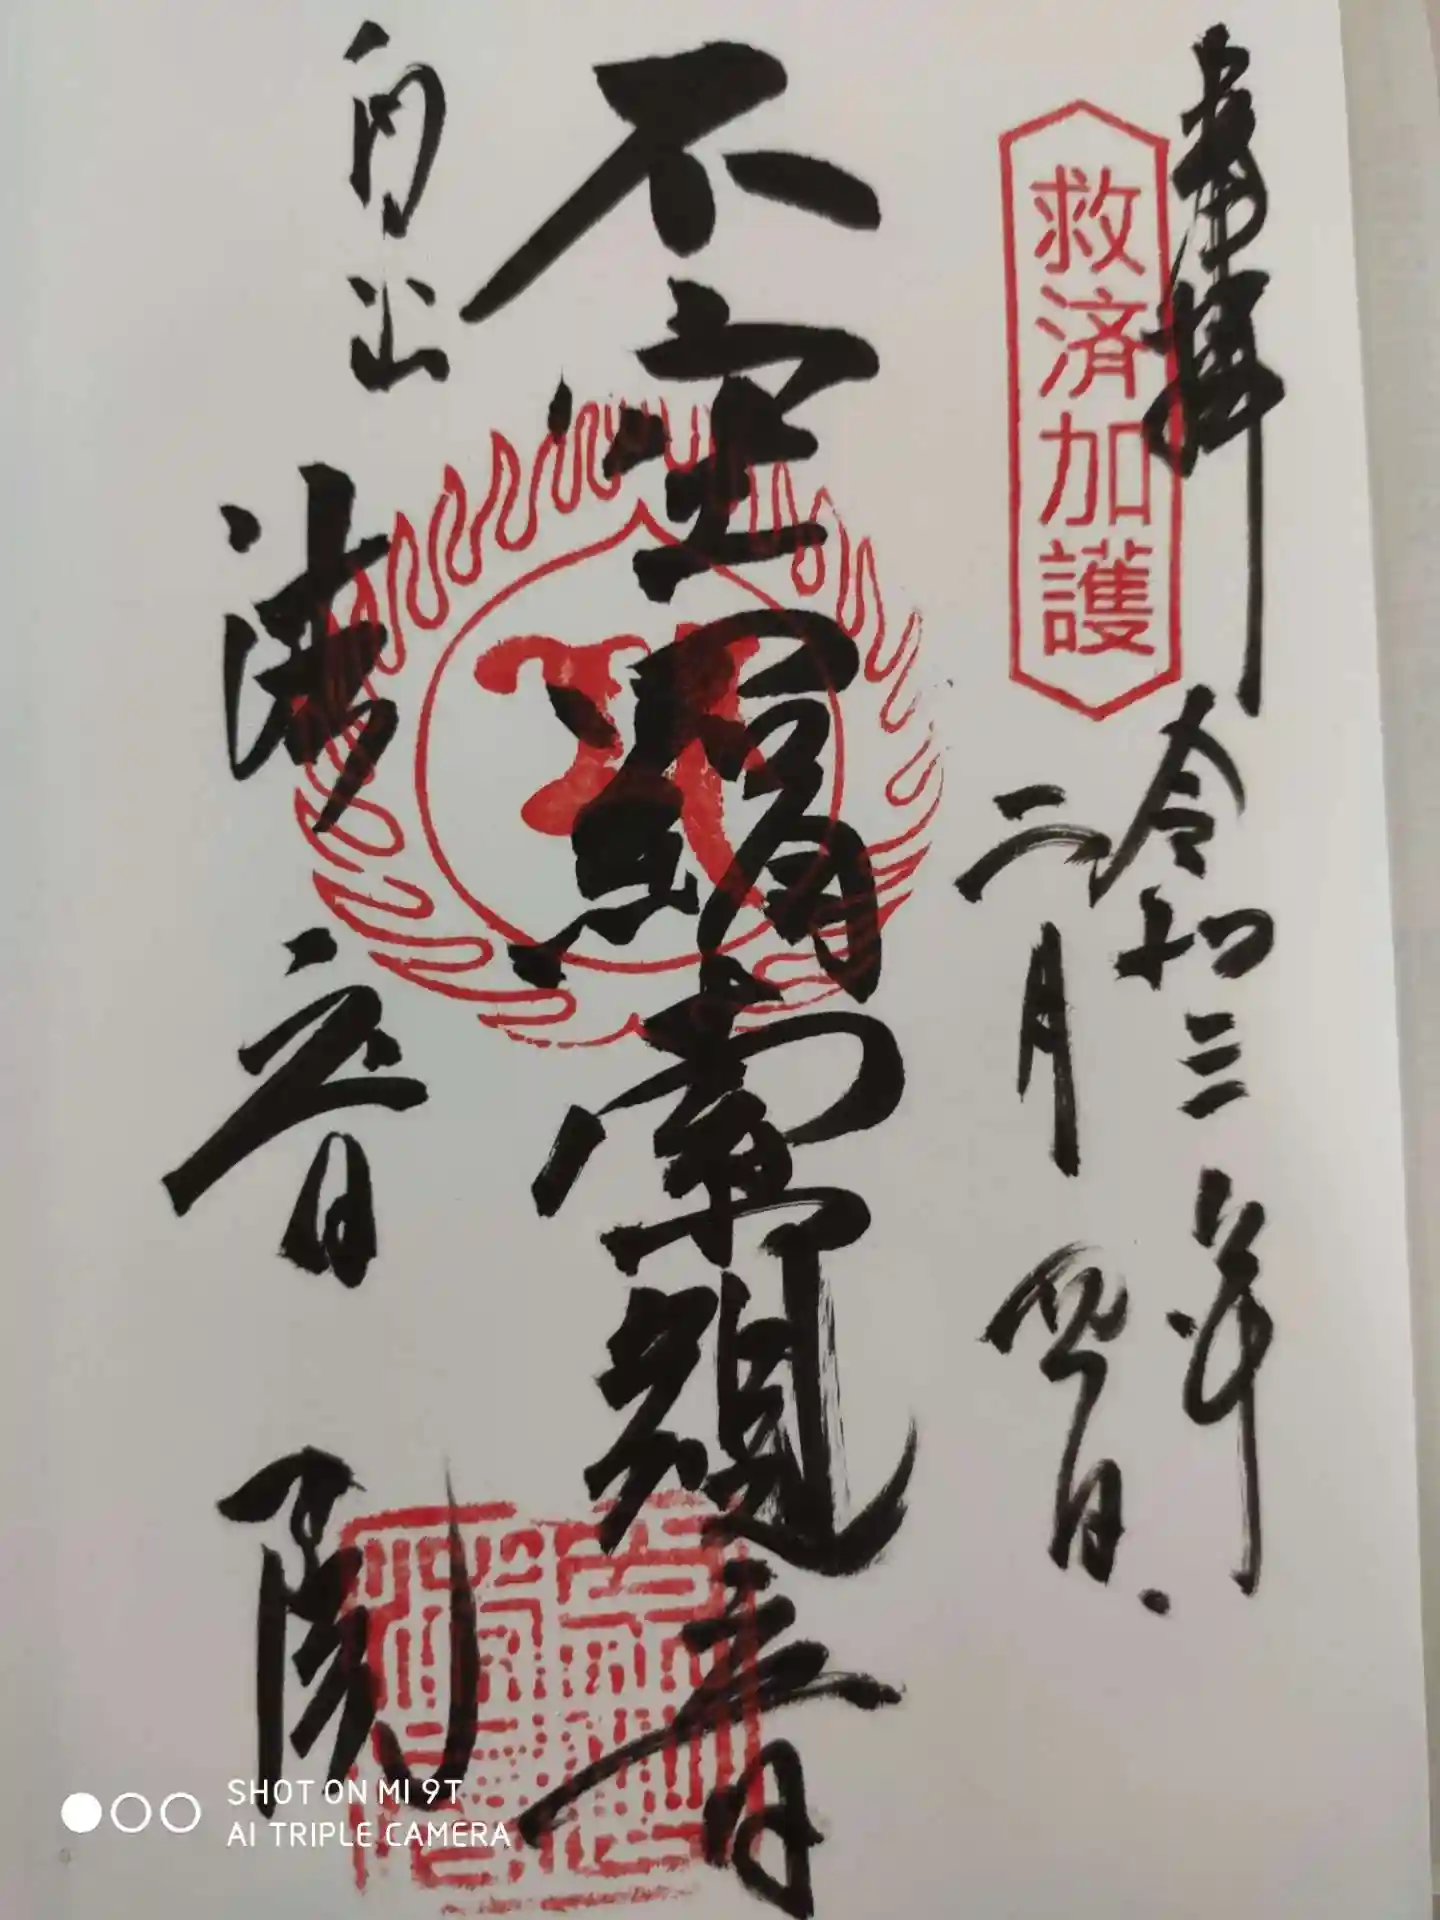 奉拝
救済加護
令和三年
二月四日
不空羂索観音
山
法音閣
SHOT ON MI 9T
AI TRIPLE CAMERA